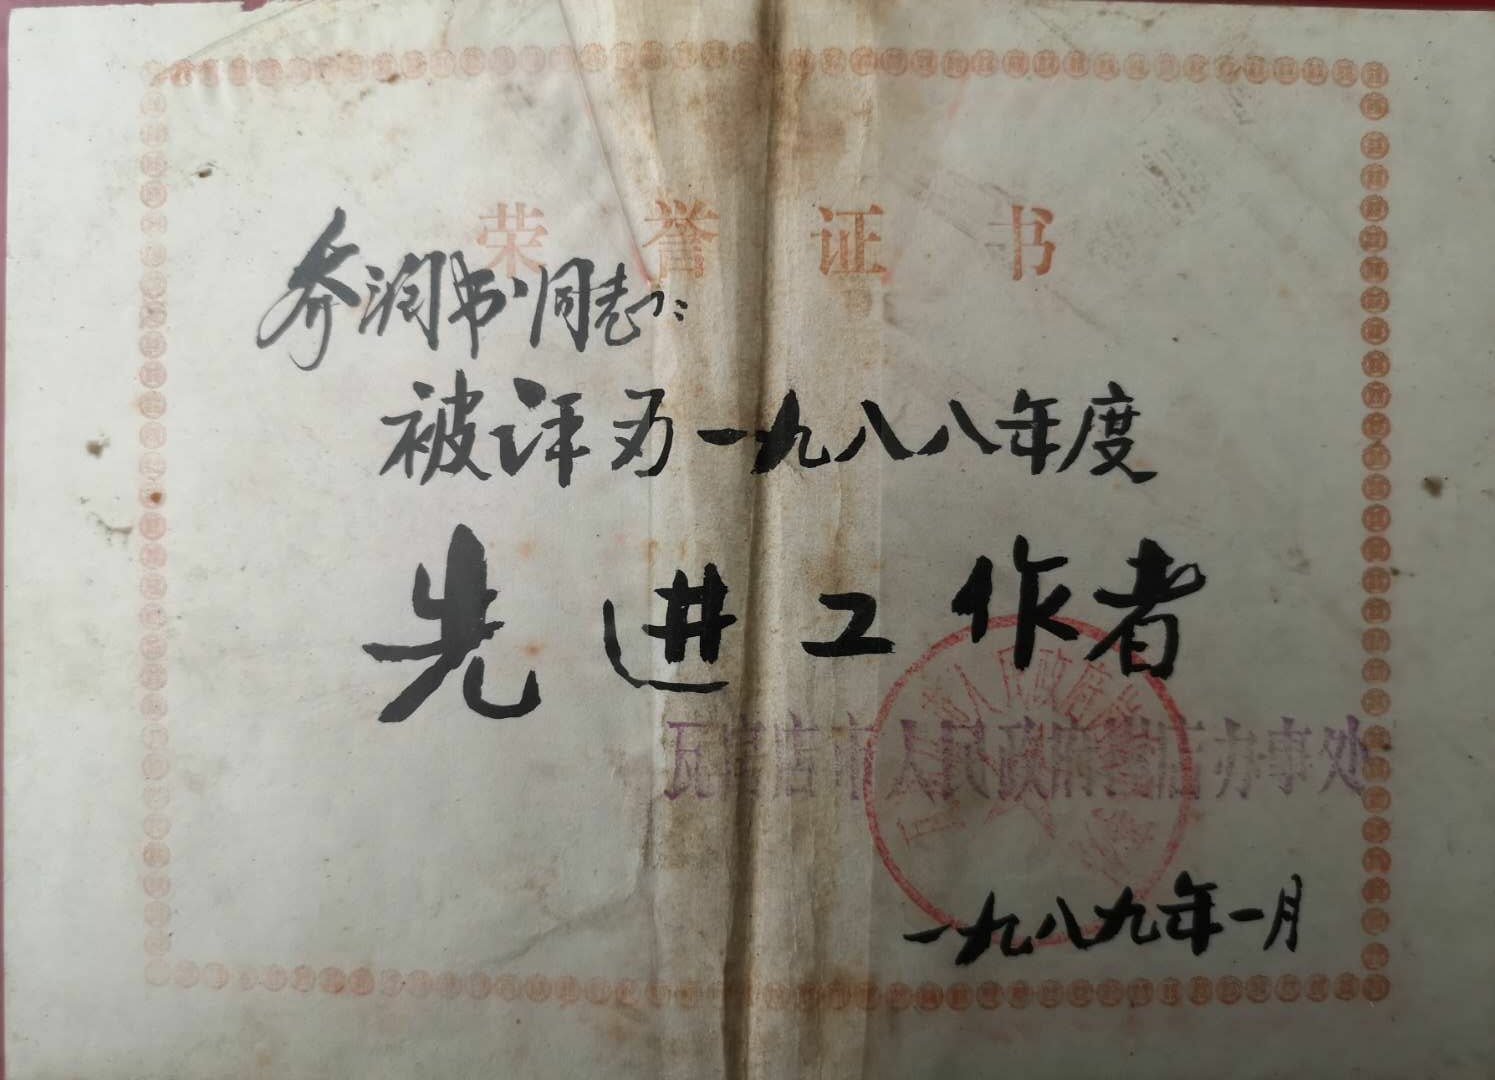 荣誉证书
乔润书同志:
被评为一九八八年度
先进工作者
瓦房店市人民政府岭店办事处
一九八九年一月